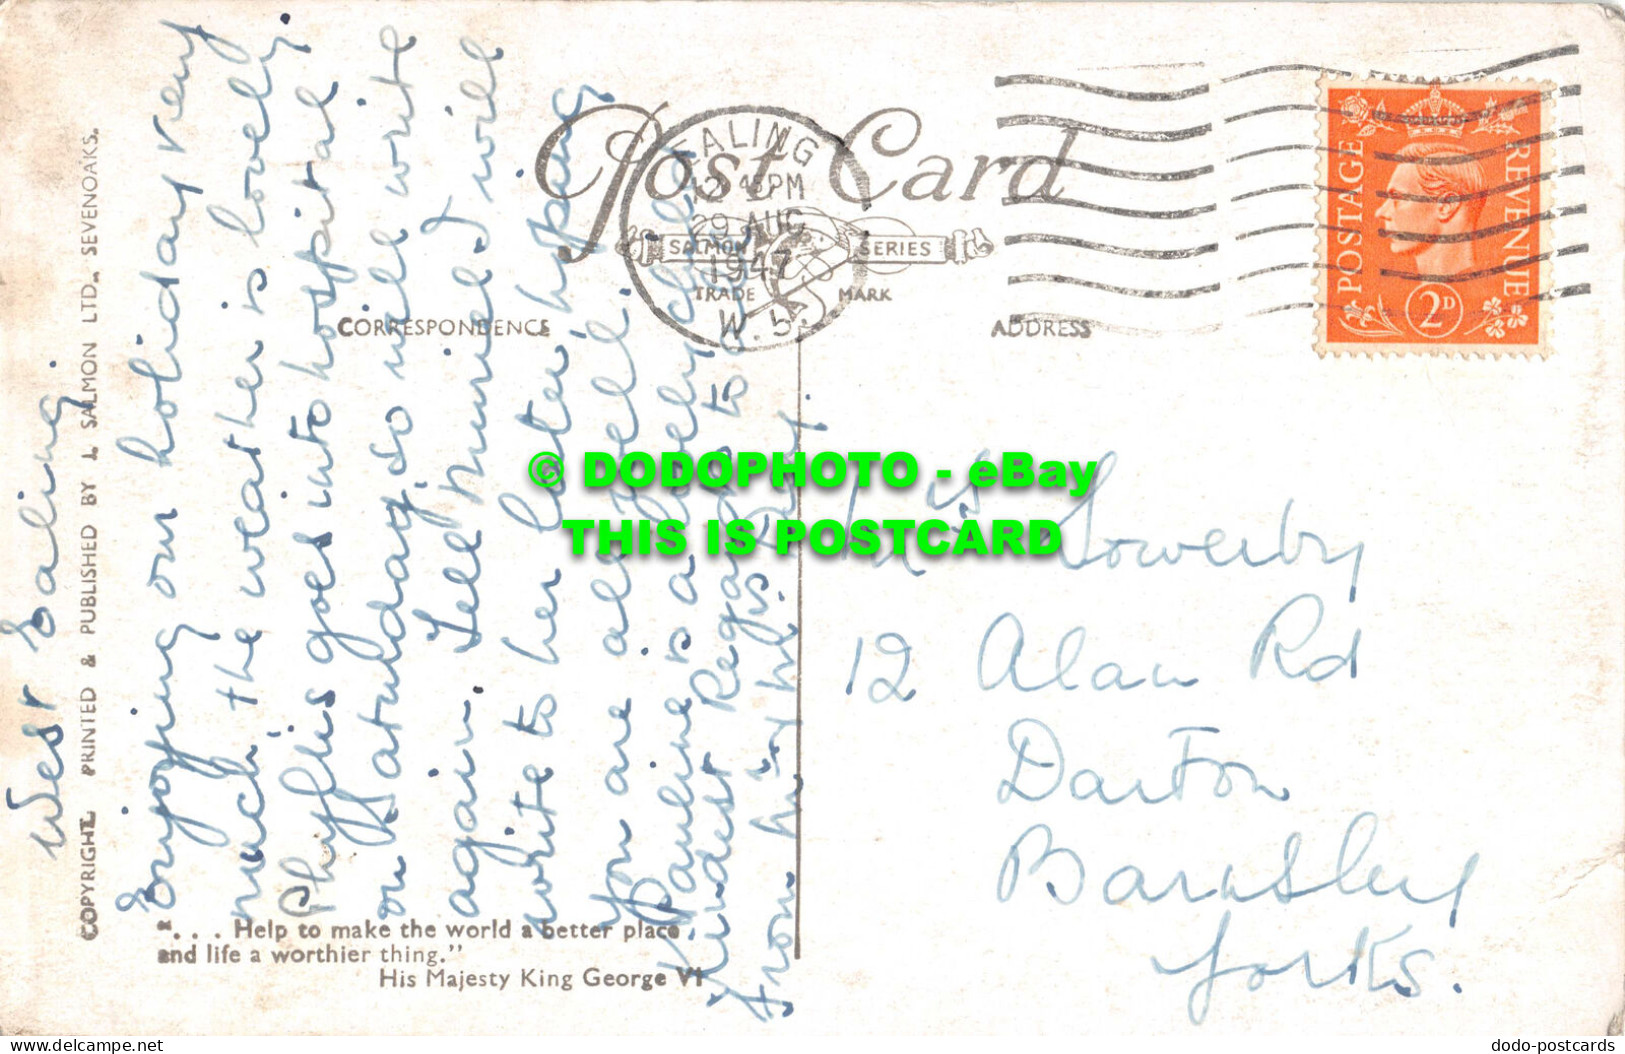 Post Card
SALMON SERIES
TRADE MARK
CORRESPONDENCE
ADDRESS
EALING
12 45 PM
29 AUG
1947
W.5
POSTAGE
REVENUE
2D
COPYRIGHT. PRINTED & PUBLISHED BY J. SALMON LTD., SEVENOAKS.
West Ealing.
Enjoying our holiday very
much the weather is lovely.
Phyllis goes into hospital
on Saturday, so will write
again. Tell Muriel I will
write to her later, hoping
you are all well.
Pauline is a lovely child
Kindest Regards to
from
Mrs Lowerby
12 Alan Rd
Darton
Barnsley
Yorks.
". . . Help to make the world a better place
and life a worthier thing."
His Majesty King George VI
© DODOPHOTO - eBay
THIS IS POSTCARD
delcampe.net
dodo-postcards